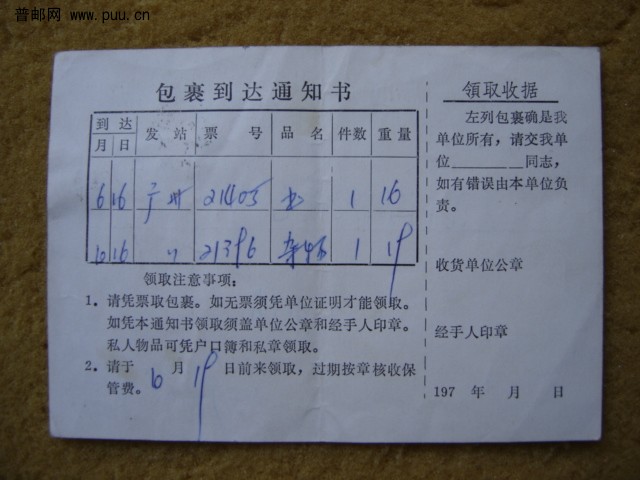 普邮网 www.puu.cn
包裹到达通知书
到达 发站 票号 品名 件数 重量
月 日
6 16 广州 21405 书 1 16
6 16 〃 21396 1 19
领取注意事项:
1．请凭票取包裹。如无票须凭单位证明才能领取。
如凭本通知书领取须盖单位公章和经手人印章。
私人物品可凭户口簿和私章领取。
2．请于 6 月 19 日前来领取，过期按章核收保
管费。
領取收据
左列包裹确是我
单位所有，请交我单
位________同志，
如有错误由本单位负
责。
收货单位公章
经手人印章
197 年 月 日